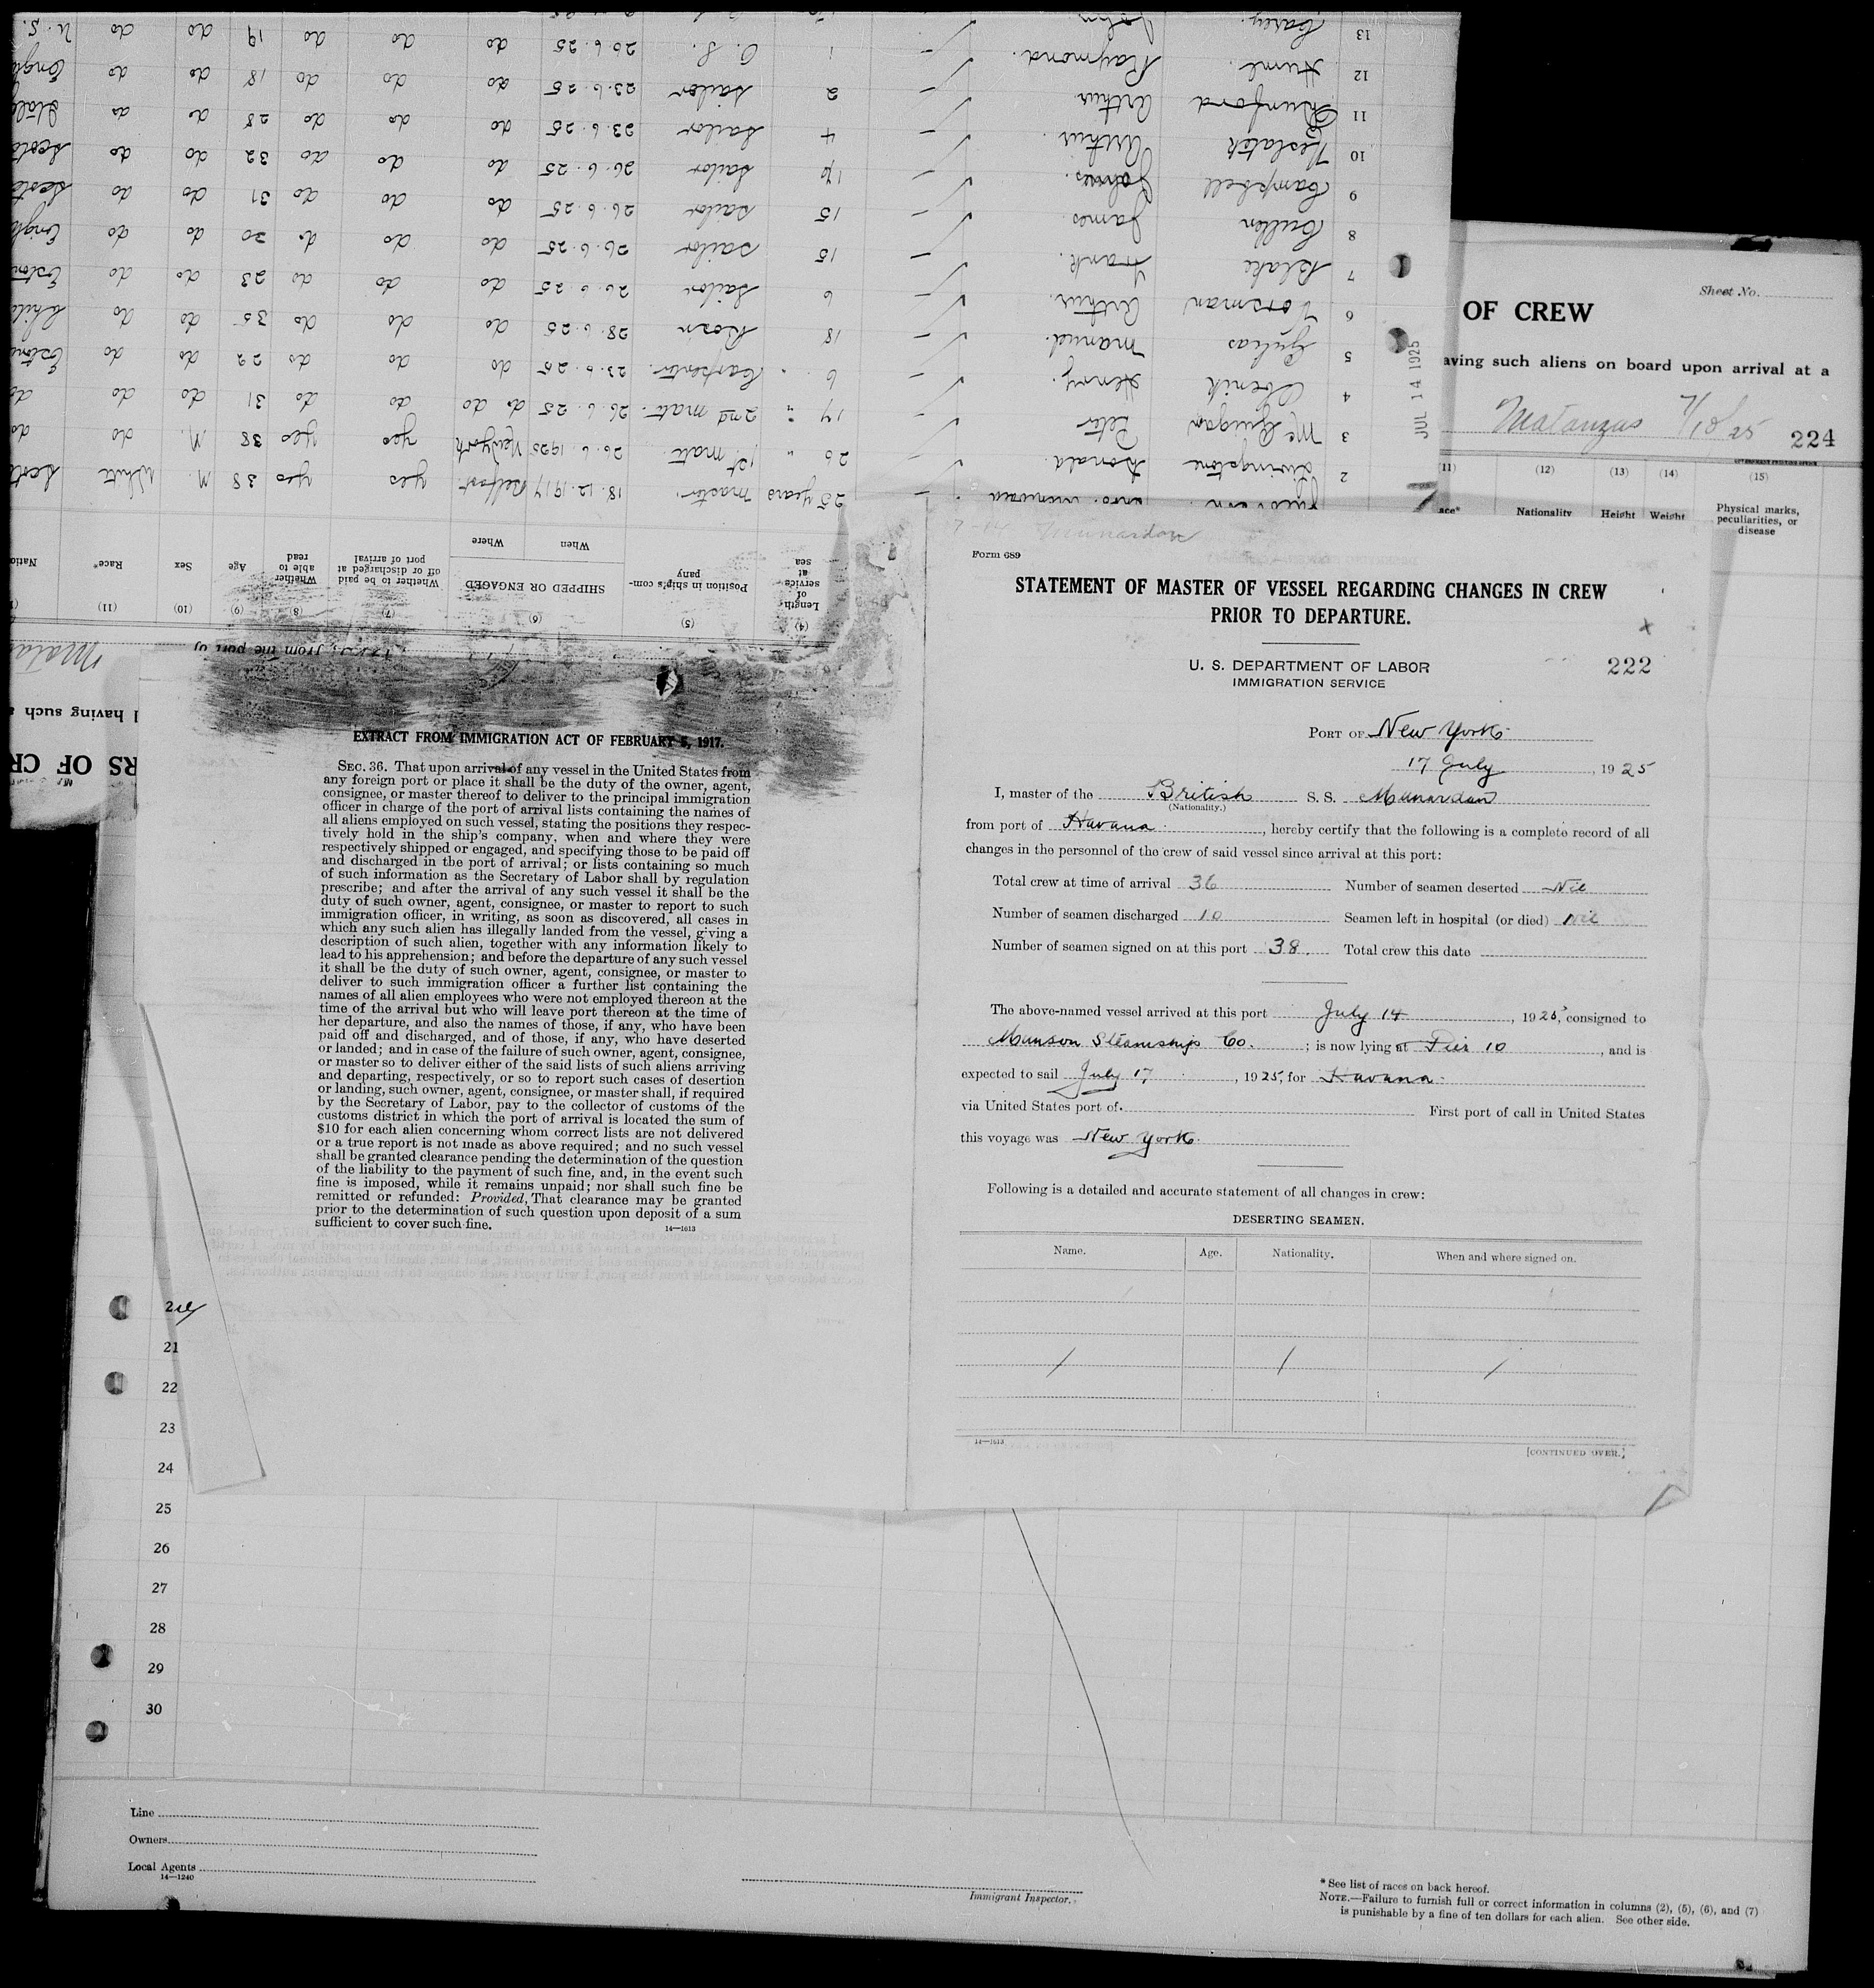 Sheet No.
OF CREW
aving such aliens on board upon arrival at a
Matanzas 7/10/25 224
JUL 14 1925
(11) (12) (13) (14) (15)
ace* Nationality Height Weight Physical marks,
peculiarities, or
disease
Munardan
Form 689
STATEMENT OF MASTER OF VESSEL REGARDING CHANGES IN CREW
PRIOR TO DEPARTURE.
x
U. S. DEPARTMENT OF LABOR
IMMIGRATION SERVICE
222
PORT OF New York
17 July, 1925
I, master of the British S. S. Munardan
(Nationality.)
from port of Havana, hereby certify that the following is a complete record of all
changes in the personnel of the crew of said vessel since arrival at this port:
Total crew at time of arrival 36 Number of seamen deserted Nil
Number of seamen discharged 10 Seamen left in hospital (or died) Nil
Number of seamen signed on at this port 38. Total crew this date
The above-named vessel arrived at this port July 14, 1925, consigned to
Munson Steamship Co.; is now lying at Pier 10, and is
expected to sail July 17, 1925, for Havana
via United States port of First port of call in United States
this voyage was New York.
Following is a detailed and accurate statement of all changes in crew:
DESERTING SEAMEN.
Name. Age. Nationality. When and where signed on.
/ / /
14—1613
[CONTINUED OVER.]
EXTRACT FROM IMMIGRATION ACT OF FEBRUARY 5, 1917.
SEC. 36. That upon arrival of any vessel in the United States from
any foreign port or place it shall be the duty of the owner, agent,
consignee, or master thereof to deliver to the principal immigration
officer in charge of the port of arrival lists containing the names of
all aliens employed on such vessel, stating the positions they respec-
tively hold in the ship's company, when and where they were
respectively shipped or engaged, and specifying those to be paid off
and discharged in the port of arrival; or lists containing so much
of such information as the Secretary of Labor shall by regulation
prescribe; and after the arrival of any such vessel it shall be the
duty of such owner, agent, consignee, or master to report to such
immigration officer, in writing, as soon as discovered, all cases in
which any such alien has illegally landed from the vessel, giving a
description of such alien, together with any information likely to
lead to his apprehension; and before the departure of any such vessel
it shall be the duty of such owner, agent, consignee, or master to
deliver to such immigration officer a further list containing the
names of all alien employees who were not employed thereon at the
time of the arrival but who will leave port thereon at the time of
her departure, and also the names of those, if any, who have been
paid off and discharged, and of those, if any, who have deserted
or landed; and in case of the failure of such owner, agent, consignee,
or master so to deliver either of the said lists of such aliens arriving
and departing, respectively, or so to report such cases of desertion
or landing, such owner, agent, consignee, or master shall, if required
by the Secretary of Labor, pay to the collector of customs of the
customs district in which the port of arrival is located the sum of
$10 for each alien concerning whom correct lists are not delivered
or a true report is not made as above required; and no such vessel
shall be granted clearance pending the determination of the question
of the liability to the payment of such fine, and, in the event such
fine is imposed, while it remains unpaid; nor shall such fine be
remitted or refunded: Provided, That clearance may be granted
prior to the determination of such question upon deposit of a sum
sufficient to cover such fine.
14—1613
RS OF CR
l having such a
, from the port of Mata
(4) (5) (6) (7) (8) (9) (10) (11)
Length of service at sea Position in ship's company SHIPPED OR ENGAGED When Where Whether to be paid off or discharged at port of arrival Whether able to read Age Sex Race* Natio
25 years master 18.12.1914 Belfast yes yes 38 M. White Scots
2 Livingstone Donald 26 " 1st mate 26.6.1925 New York yes yes 38 M. do do
3 McGuigan Peter 14 " 2nd mate 26.6.25 do do do do 31 do do do
4 Henry 6 " Carpenter 23.6.25 do do do 29 do do Estoni
5 Manuel 18 Bosn 28.6.25 do do do 35 do do Chile
6 Vorsman Arthur 6 sailor 26.6.25 do do do 23 do do Eston
7 Blake Frank 15 sailor 26.6.25 do do do 30 do do Engla
8 Cullen James 15 sailor 26.6.25 do do do 31 do do Scots
9 Campbell James 14 sailor 26.6.25 do do do 32 do do Scots
10 Arthur 4 sailor 23.6.25 do do do 28 do do Italy
11 Munford Arthur 2 sailor 23.6.25 do do do 18 do do Engla
12 Hume Raymond 1 O.S. 26.6.25 do do do 19 do do U.S.
13 Carey John
21
22
23
24
25
26
27
28
29
30
Line
Owners
Local Agents
14—1240
Immigrant Inspector.
* See list of races on back hereof.
NOTE.—Failure to furnish full or correct information in columns (2), (5), (6), and (7)
is punishable by a fine of ten dollars for each alien. See other side.